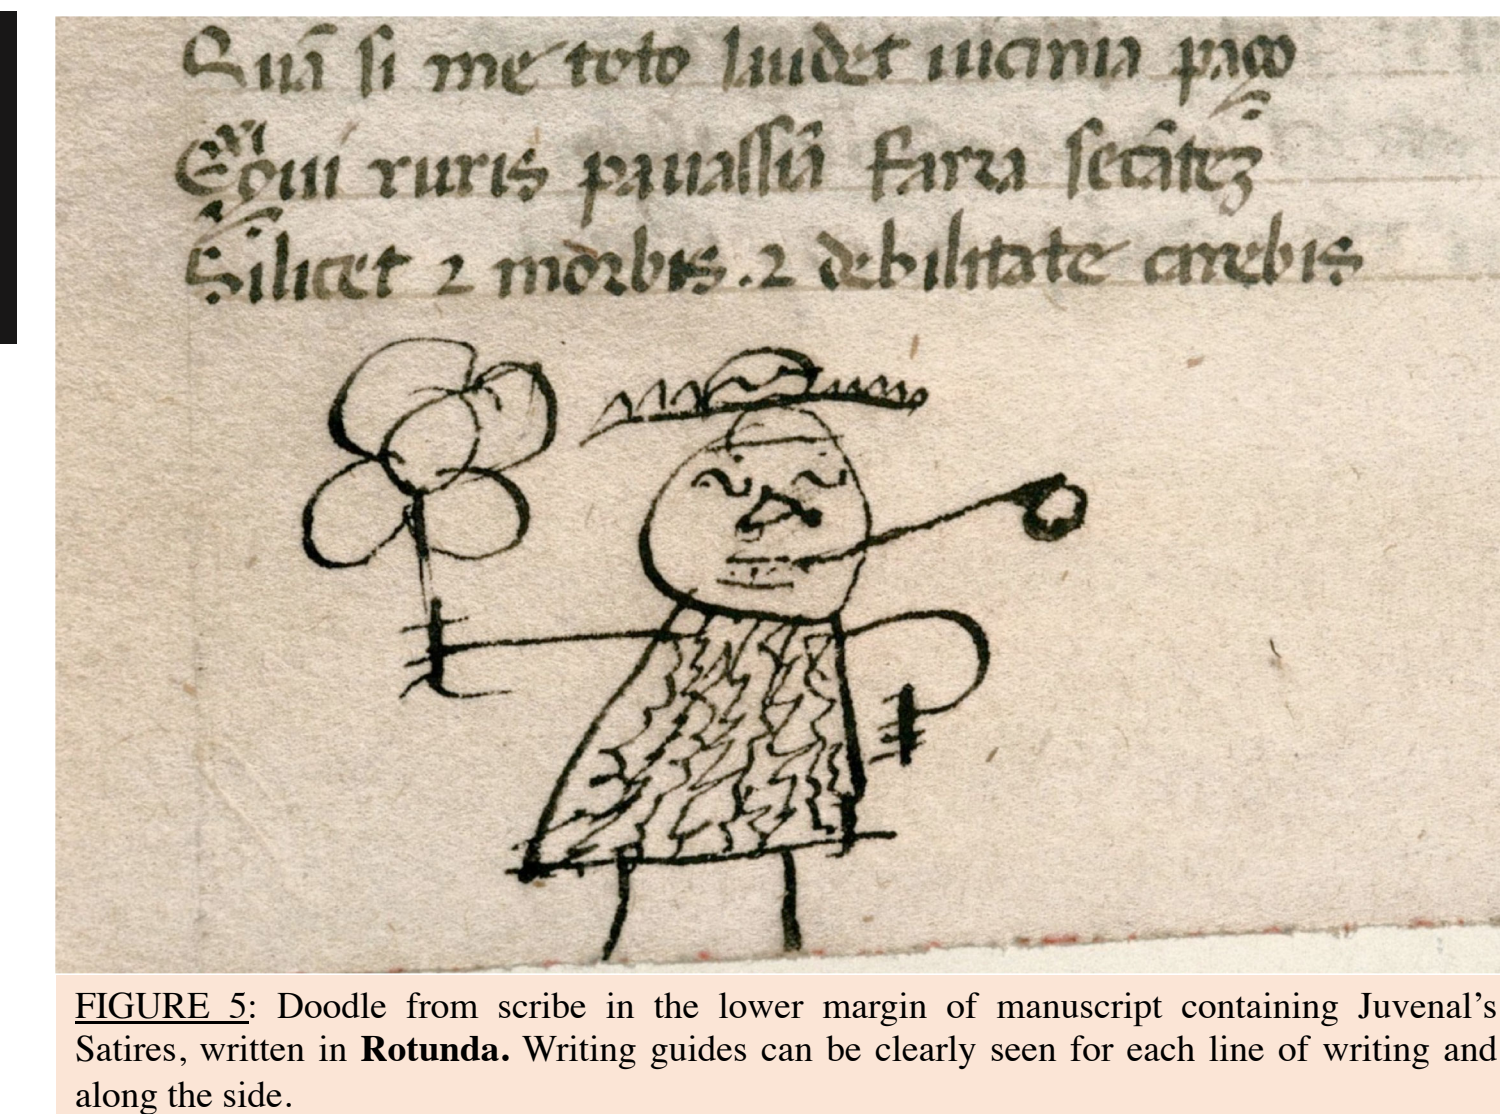 Quā si me toto laudet uicinia pago
Egui ruris pauassū farra secātez
Silicet 2 morbis .2 debilitate carebis
FIGURE 5: Doodle from scribe in the lower margin of manuscript containing Juvenal’s
Satires, written in Rotunda. Writing guides can be clearly seen for each line of writing and
along the side.